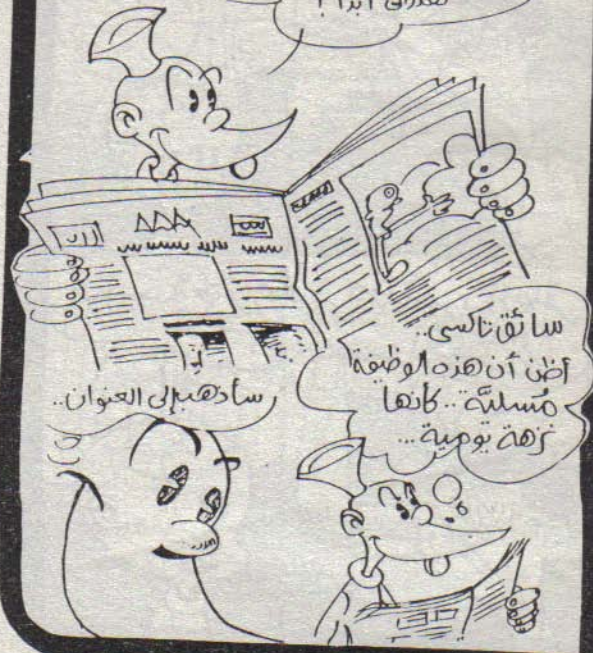 أبدا !
سائق تاكسى..
أظن أن هذه الوظيفة
مُسليَّة .. كانها
نزهة يومية ...
سأذهب إلى العنوان..